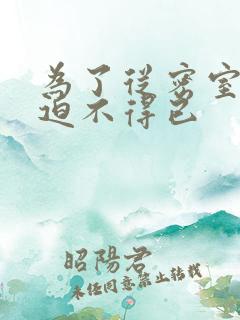 為了從密室
迫不得已
昭陽君
未経同意禁止转载